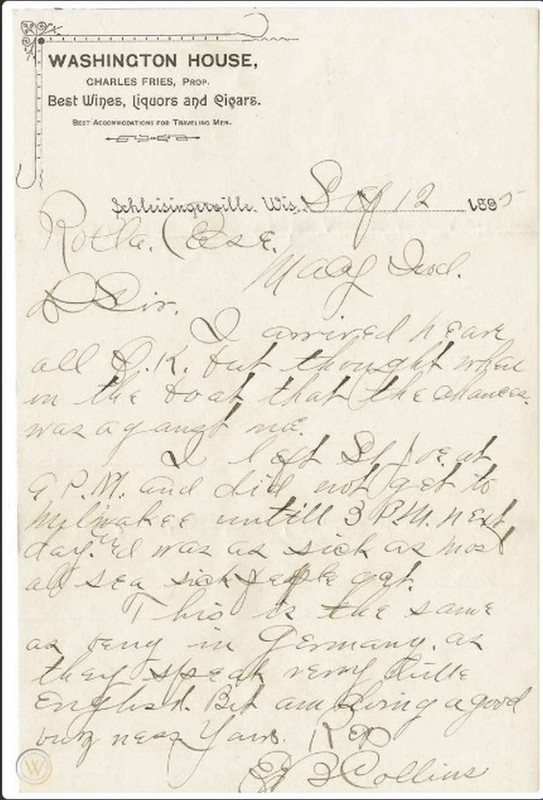 WASHINGTON HOUSE,
CHARLES FRIES, PROP.
Best Wines, Liquors and Cigars.
BEST ACCOMMODATIONS FOR TRAVELING MEN.
Schleisingerville, Wis., Sep 12 1895
Rolla. Esq.
Macy Ind.
D Sir.
I arrived heare
all O.K. but thought when
in the boat that the chances.
was aganst me.
I left St Joe at
9 P.M. and did not get to
Milwakee untill 3 P.M. next
day. I was as sick as most
all sea sick people get.
This is the same
as being in Germany. as
they speak very little
English. But am doing a good
buz ness Yours. Resp
Collins